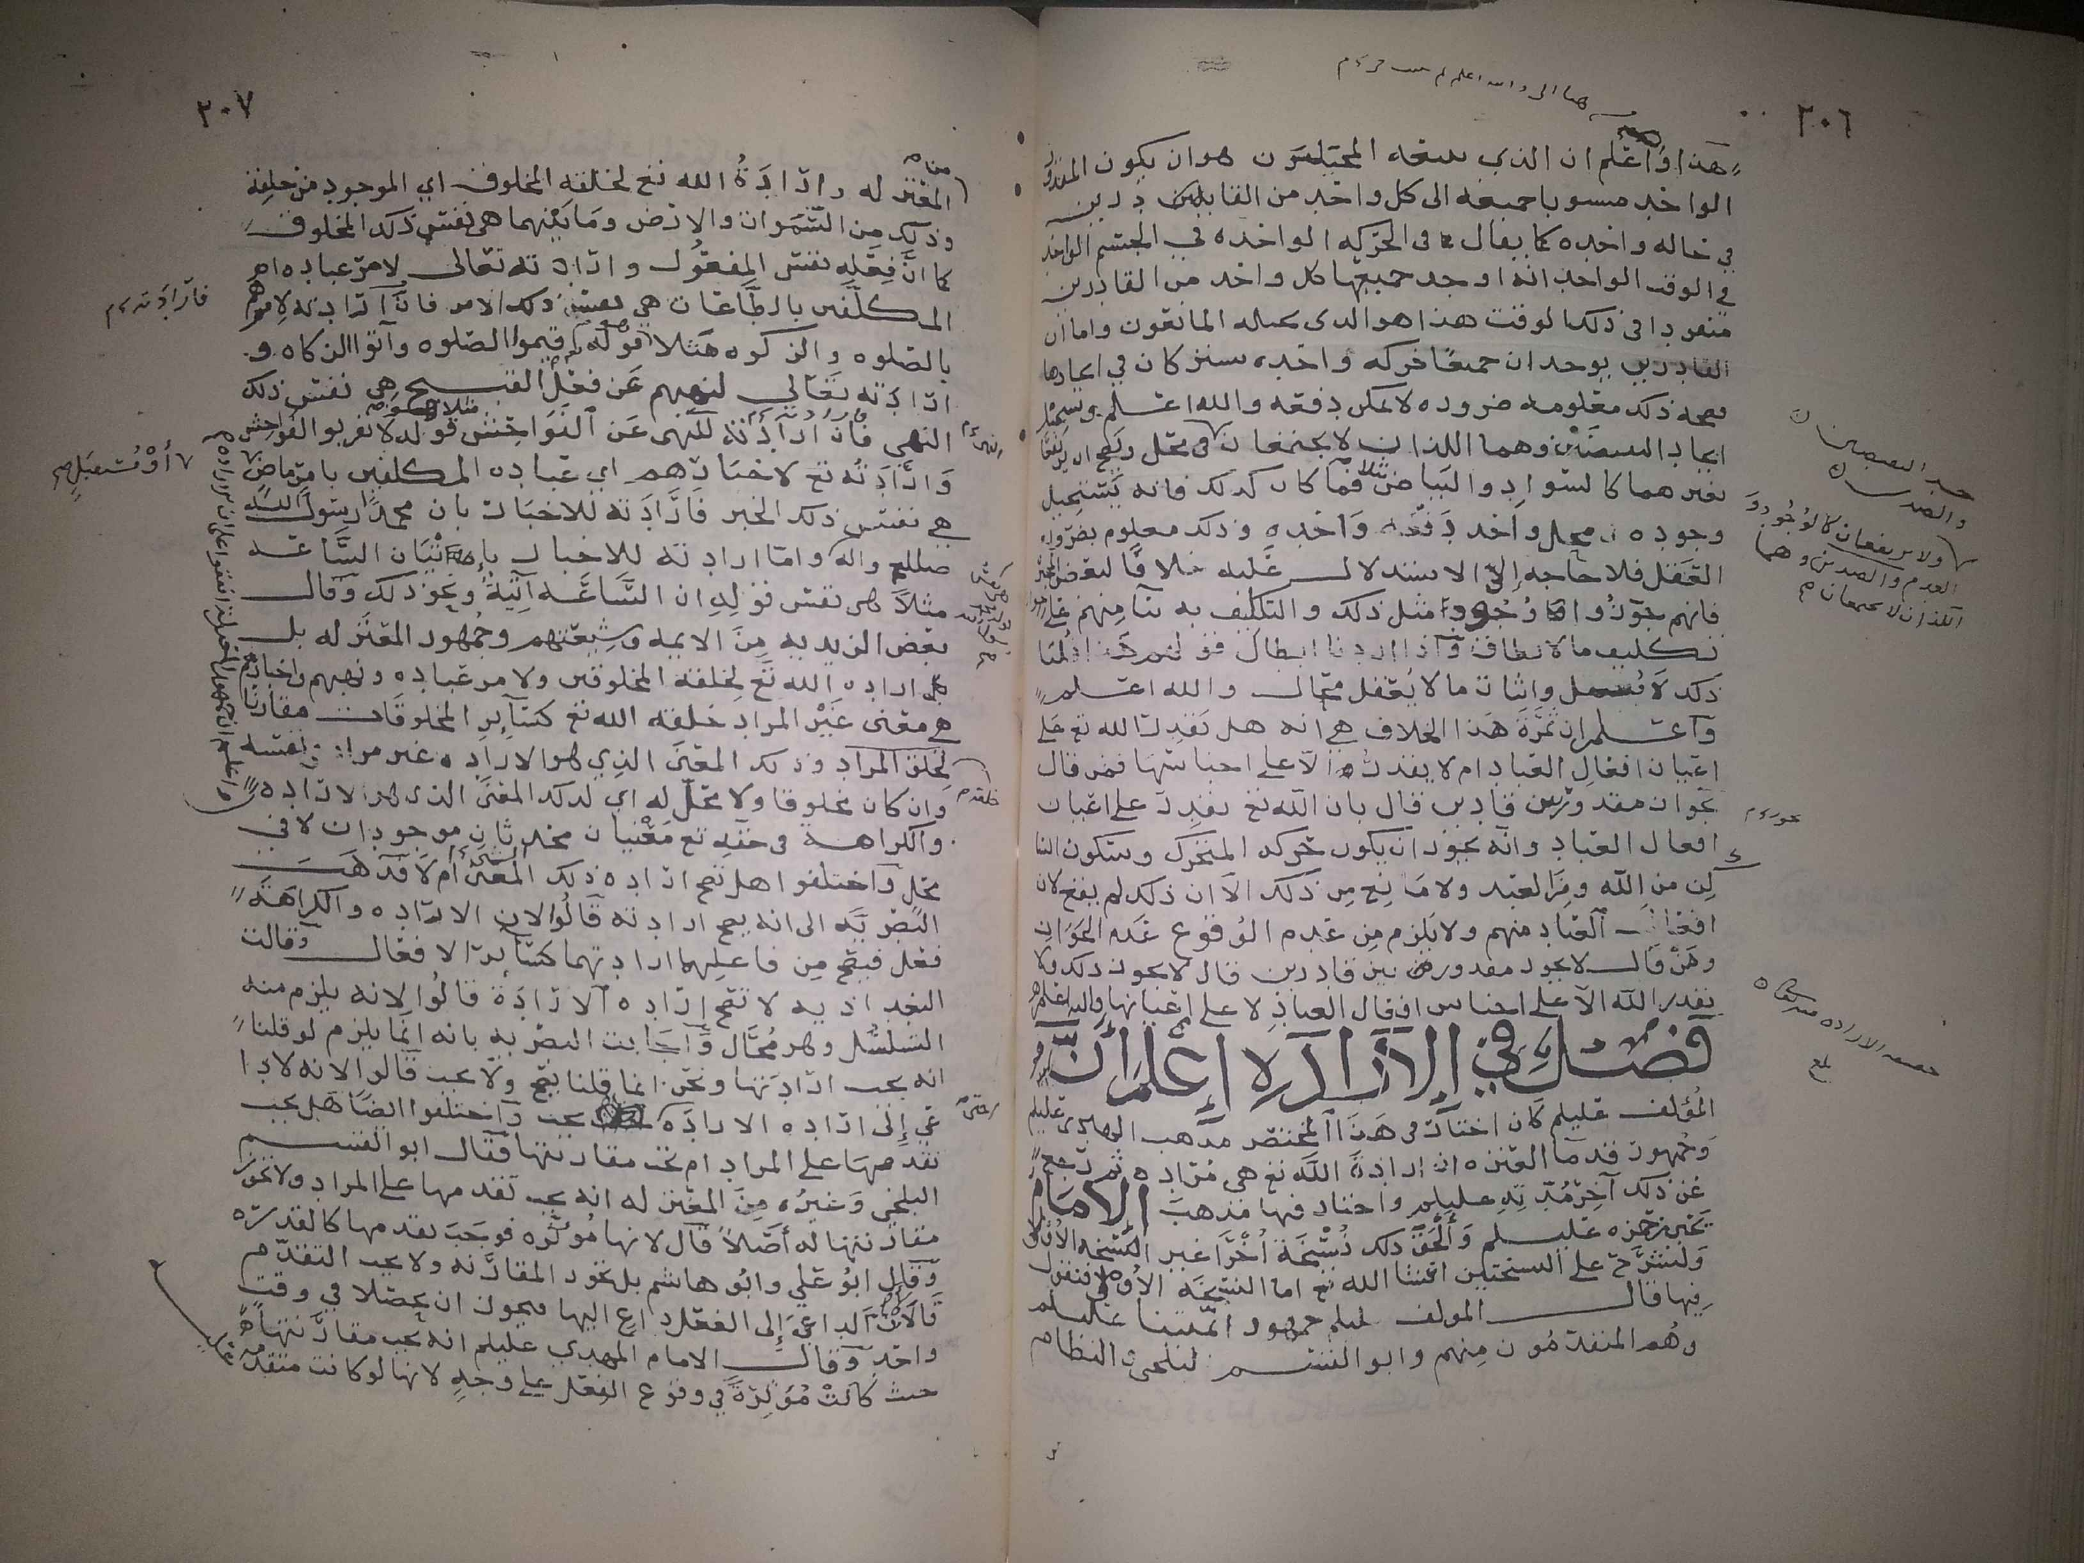 ٢٠٦
هذا واعلم ان الذي هو ان يكون المقدور
الواحد الى كل واحد من القادرين
في حاله واحده كما يقال في الحركه الواحده في الجسم الواحد
في الوقت الواحد انه اوجد جميعها كل واحد من القادرين
منفردا في ذلك الوقت هذا هو الذي المانعون واما ان
القادرين يوجدان جميعا حركه واحده في ايجادها
فصحه ذلك معلومه ضروره لا يمكن دفعه والله اعلم ويستحيل
ايجاد النقيضين وهما اللذان لا يجتمعان في محل
بغيرهما كالسواد والبياض مثلا فما كان كذلك فانه يستحيل
وجوده في محل واحد دفعه واحده وذلك معلوم بضروره
العقل فلا حاجه الى الاستدلال عليه خلافا لبعض
فانهم جوزوا وجود مثل ذلك والتكليف به بنا منهم على
تكليف ما لا يطاق واذا اردنا ابطال قولهم هذا قلنا
ذلك لا يعقل واثبات ما لا يعقل محال والله اعلم
واعلم ان ثمرة هذا الخلاف هي انه هل يقدر الله تع على
اعيان افعال العباد ام لا يقدر الا على اجناسها فمن قال
بجواز مقدور بين قادرين قال بان الله تع يقدر على اعيان
افعال العباد وانه يجوز ان يكون حركه المتحرك وسكون
من الله ومن العبد ولا مانع من ذلك الا ان ذلك لم يقع لان
افعال العباد منهم ولا يلزم من عدم الوقوع عدم الجواز
ومن قال لا يجوز مقدور بين قادرين قال لا يجوز ذلك ولا
يقدر الله الا على اجناس افعال العباد لا على اعيانها والله اعلم
فصل في الارادة إعلم أن
المؤلف عليلم كان اختار في هذا المختصر مذهب
وجمهور قدما المعتزله ان ارادة الله تع هي مراده ثم رجع
عن ذلك آخر مدته عليلم واختار فيها مذهب الامام
يحيى بن حمزه عليلم وألحق ذلك نسخة أخرى غير النسخه الأولى
ولنشرح على النسختين انشا الله تع اما النسخه الأولى فنقول
فيها قال المولف عليلم جمهور ائمتنا عليلم
وهم المتقدمون منهم وابو القسم البلخي والنظام
ولا يرتفعان كالوجود و
العدم والضدين وهما
اللذان لا يجتمعان
٢٠٧
المعتزله وارادة الله تع لخلقه المخلوق اي الموجود من خلقه
وذلك من السموات والارض وما بينهما هي نفس ذلك المخلوق
كما ان فعله نفس المفعول وارادته تعالى لامر عباده
المكلفين بالطاعات هي نفس ذلك الامر فان ارادته لامرهم
بالصلوه والزكوه مثلا هو قوله اقيموا الصلوه وآتوا الزكاه و
ارادته تعالى لنهيهم عن فعل القبيح هي نفس ذلك
النهي فان ارادته للنهي عن الفواحش قوله لا تقربوا الفواحش
وارادته تع لاخبارهم اي عباده المكلفين بامر ماض
هي نفس ذلك الخبر فارادته للاخبار بان محمدا رسول الله
صللم واله واما ارادته للاخبار بإتيان الساعه
مثلا هي نفس قوله ان الساعه آتية ونحو ذلك وقال
بعض الزيديه من الايمه وشيعتهم وجمهور المعتزله بل
بل اراده الله تع لخلقه المخلوقين ولامر عباده ونهيهم واخبارهم
هي معنى غير المراد خلقه الله تع كسائر المخلوقات مقارنا
لخلق المراد وذلك المعنى الذي هو الاراده غير مراد في نفسه
وان كان مخلوقا ولا محل له اي لذلك المعنى الذي هو الاراده
والكراهة في حقه تع معنيان محدثان موجودان لا في
محل واختلفوا هل تصح اراده ذلك المعنى أم لا فذهب
البصريه الى انه يصح ارادته قالوا لان الاراده والكراهة
فعل فيصح من فاعلهما ارادتهما كسائر الافعال وقالت
البغداديه لا تصح إراده الارادة قالوا لانه يلزم منه
التسلسل وهو محال وأجابت البصريه بانه انما يلزم لو قلنا
انه يجب ارادتها ونحن انما قلنا يصح ولا يجب قالوا لانه لا داع
إلى اراده الاراده يجب واختلفوا ايضا هل يجب
تقدمها على المراد ام تجب مقارنتها فقال ابو القسم
البلخي وغيره من المعتزله انه يجب تقدمها على المراد ولا تجوز
مقارنتها له أصلا قال لانها مؤثره فوجب تقدمها كالقدره
وقال ابو علي وابو هاشم بل تجوز المقارنه ولا يجب التقدم
قالا لان الداعي إلى الفعل داع اليها فيجوز ان يحصلا في وقت
واحد وقال الامام المهدي عليلم انه يجب مقارنتها
حيث كانت مؤثرة في وقوع الفعل على وجه لانها لو كانت متقدمه
أو مستقبل
فارادته